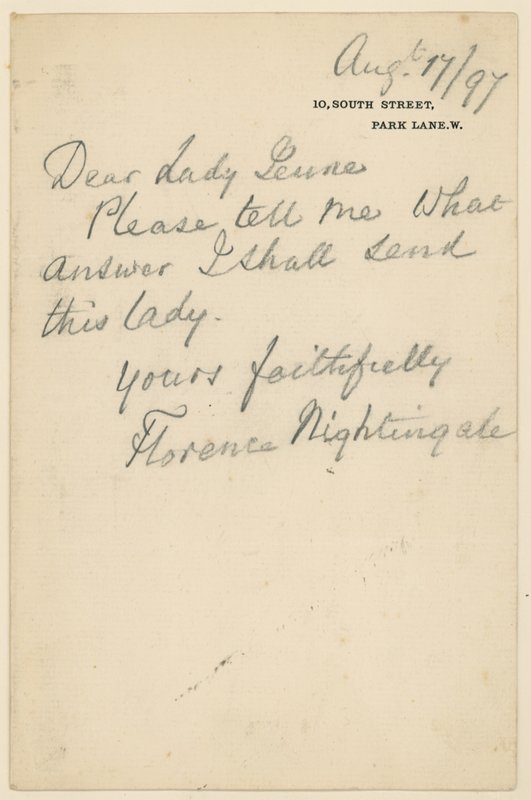 Augt. 17/97
10, SOUTH STREET,
PARK LANE. W.
Dear Lady Jeune
Please tell me what
answer I shall send
this lady.
Yours faithfully
Florence Nightingale